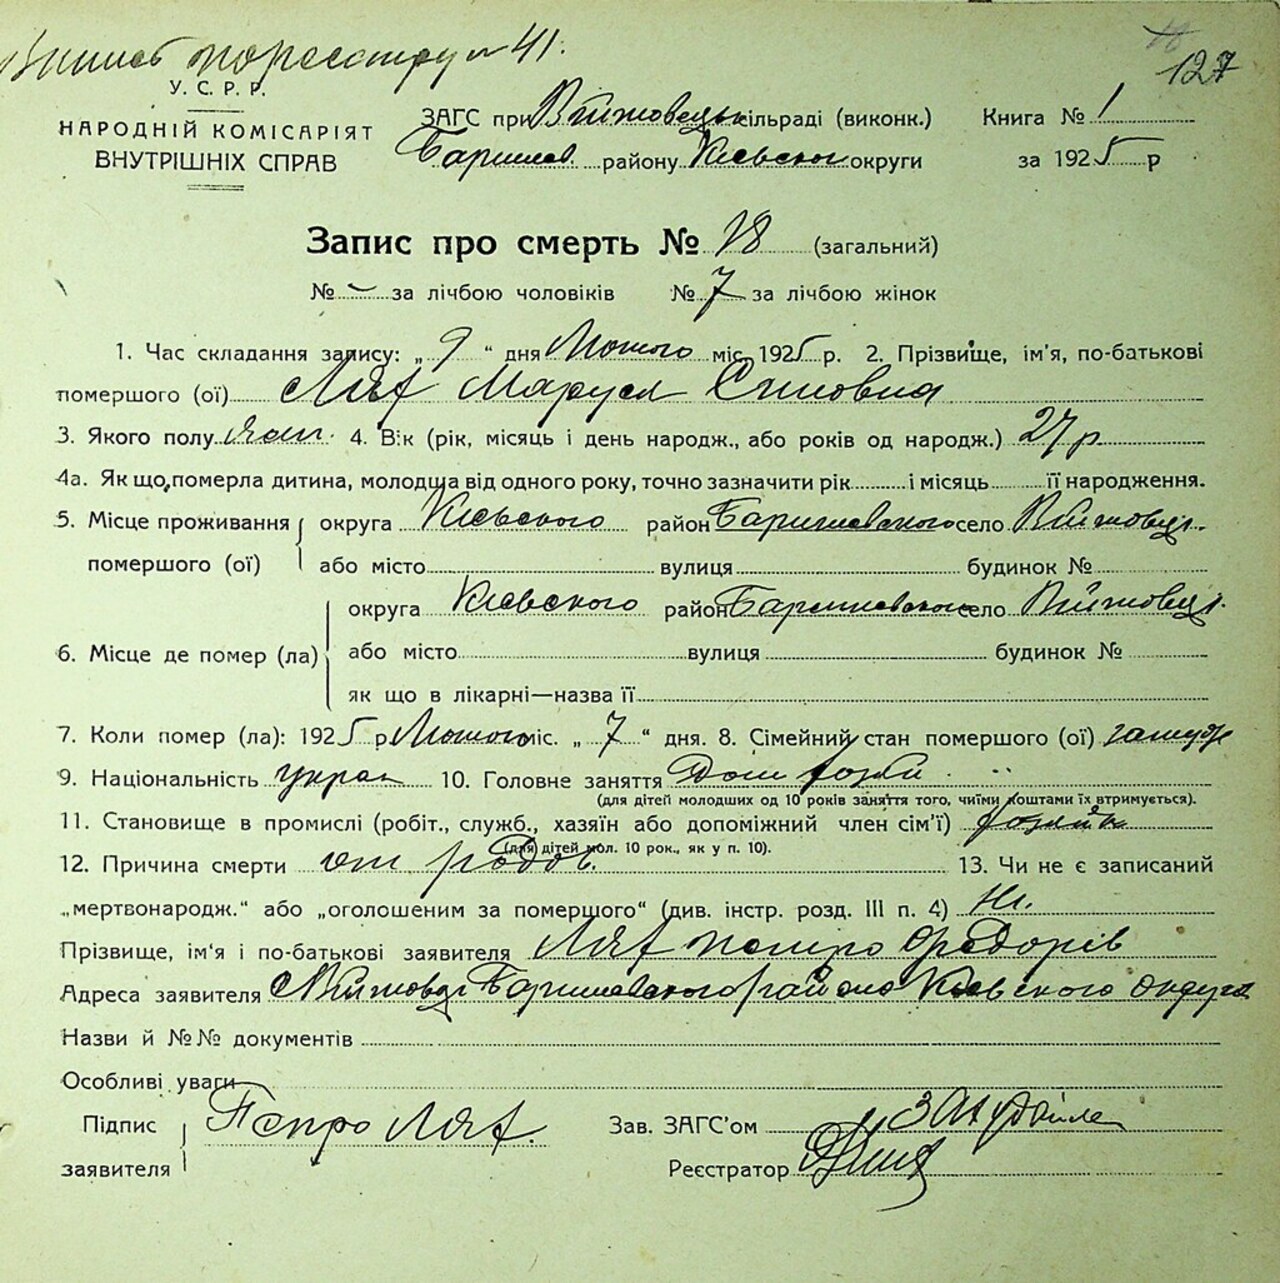 по реєстру № 41.
127
У. С. Р. Р.
НАРОДНІЙ КОМІСАРІЯТ
ВНУТРІШНІХ СПРАВ
ЗАГС при сільраді (виконк.) Книга № 1
Баришев району Київської округи за 1925 р
Запис про смерть № 18 (загальний)
№ – за лічбою чоловіків № 7 за лічбою жінок
1. Час складання запису: „ 9 “ дня Лютого міс. 1925 р. 2. Прізвище, ім'я, по-батькові
помершого (ої) Лях Маруся
3. Якого полу 4. Вік (рік, місяць і день народж., або років од народж.) 27 р
4а. Як що померла дитина, молодша від одного року, точно зазначити рік і місяць її народження.
5. Місце проживання округа Київського район Баришевского село
помершого (ої) або місто вулиця будинок №
округа Київського район Баришевского село
6. Місце де помер (ла) або місто вулиця будинок №
як що в лікарні—назва її
7. Коли помер (ла): 1925 р Лютого міс. „ 7 “ дня. 8. Сімейний стан помершого (ої) замужн
9. Національність украї 10. Головне заняття Дом
(для дітей молодших од 10 років заняття того, чиїми коштами їх втримується).
11. Становище в промислі (робіт., служб., хазяїн або допоміжний член сім'ї)
(для дітей мол. 10 рок., як у п. 10).
12. Причина смерти от родов. 13. Чи не є записаний
„мертвонародж.“ або „оголошеним за помершого“ (див. інстр. розд. III п. 4) Ні.
Прізвище, ім'я і по-батькові заявителя Лях Петро Федорів
Адреса заявителя Баришевского района Київського округа
Назви й №№ документів
Особливі уваги
Підпис Петро Лях. Зав. ЗАГС'ом
заявителя Реєстратор